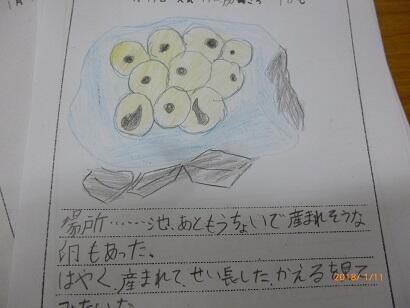 場所……池、あともうちょいで産まれそうな
卵もあった。
はやく、産まれて、せい長した、かえる
てみたいな
2018/1/11